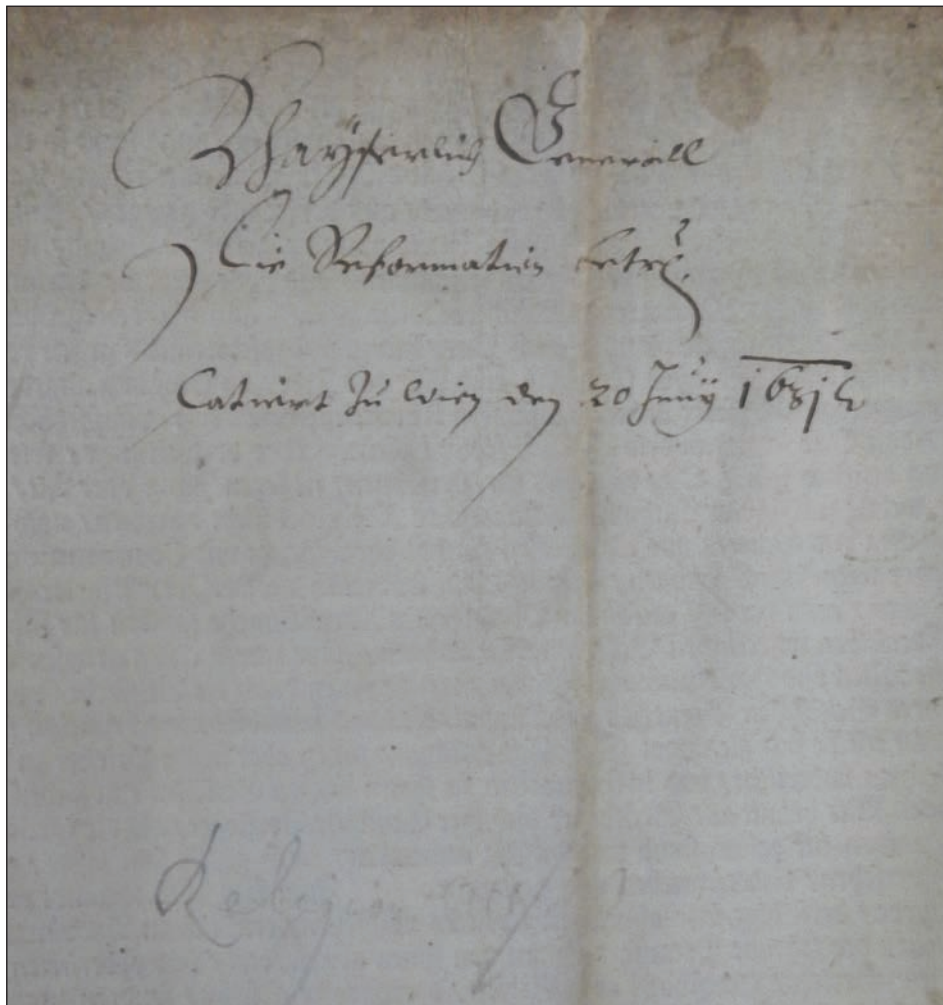 Khaÿserlich Generall
Die Reformation betr:
Datiert Zu Wien den 20 Juny
Religion